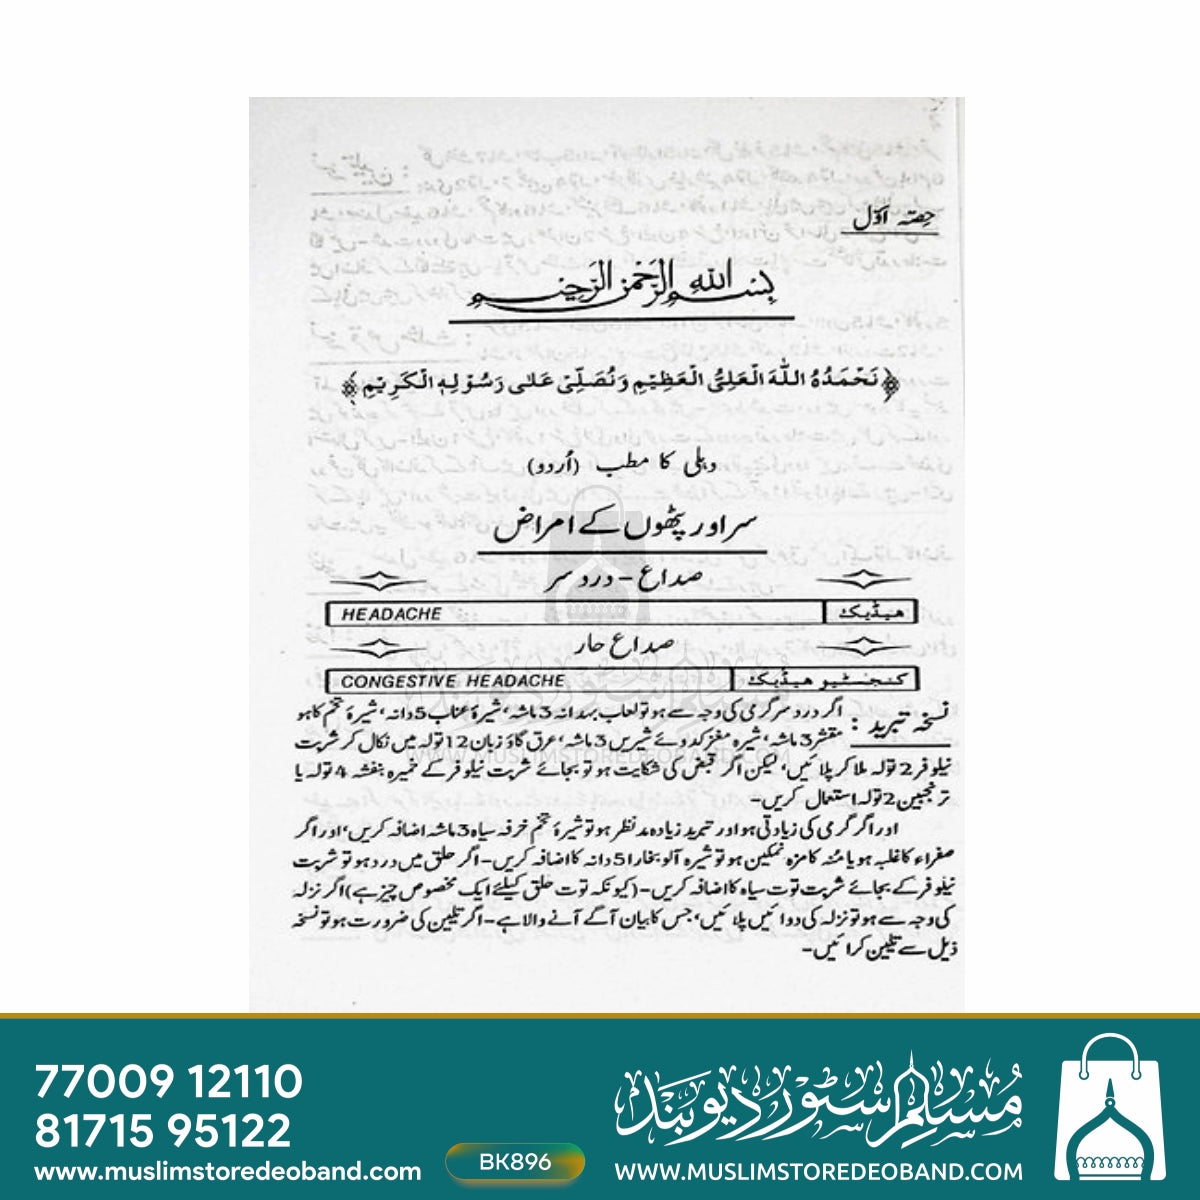 حِصّہ اوّل
بِسْمِ اللّٰہِ الرَّحْمٰنِ الرَّحِیْمِ
نَحْمَدُہُ اللّٰہَ الْعَلِیَّ الْعَظِیْمِ وَنُصَلِّیْ عَلٰی رَسُوْلِہِ الْکَرِیْمِ
دہلی کا مطب (اُردو)
سر اور پٹھوں کے امراض
صداع - درد سر
HEADACHE هیڈیک
صداع حار
CONGESTIVE HEADACHE کنجسٹیو هیڈیک
نسخہ تبرید : اگر درد سر گرمی کی وجہ سے ہو تو لعاب بہدانہ 3 ماشہ، شیرۂ عناب 5 دانہ، شیرۂ تخم کاہو
مقشر 3 ماشہ، شیرہ مغز کدوئے شیریں 3 ماشہ، عرق گاؤ زبان 12 تولہ میں نکال کر شربت
نیلوفر 2 تولہ ملا کر پلائیں، لیکن اگر قبض کی شکایت ہو تو بجائے شربت نیلوفر کے خمیرہ بنفشہ 4 تولہ یا
ترنجبین 2 تولہ استعمال کریں۔
اور اگر گرمی کی زیادتی ہو اور تبرید زیادہ مد نظر ہو تو شیرۂ تخم خرفہ سیاہ 3 ماشہ اضافہ کریں، اور اگر
صفراء کا غلبہ ہو یا منہ کا مزہ نمکین ہو تو شیرہ آلو بخارا 5 دانہ کا اضافہ کریں۔ اگر حلق میں درد ہو تو شربت
نیلوفر کے بجائے شربت توت سیاہ کا اضافہ کریں۔ (کیونکہ توت حلق کیلئے ایک مخصوص چیز ہے) اگر نزلہ
کی وجہ سے ہو تو نزلہ کی دوائیں پلائیں، جس کا بیان آگے آنے والا ہے۔ اگر تلیین کی ضرورت ہو تو نسخہ
ذیل سے تلیین کرائیں۔
مسلم سٹور دیوبند
WWW.MUSLIMSTOREDEOBAND.COM
77009 12110
81715 95122
www.muslimstoredeoband.com
BK896
مُسلم سٹور دیوبند
WWW.MUSLIMSTOREDEOBAND.COM